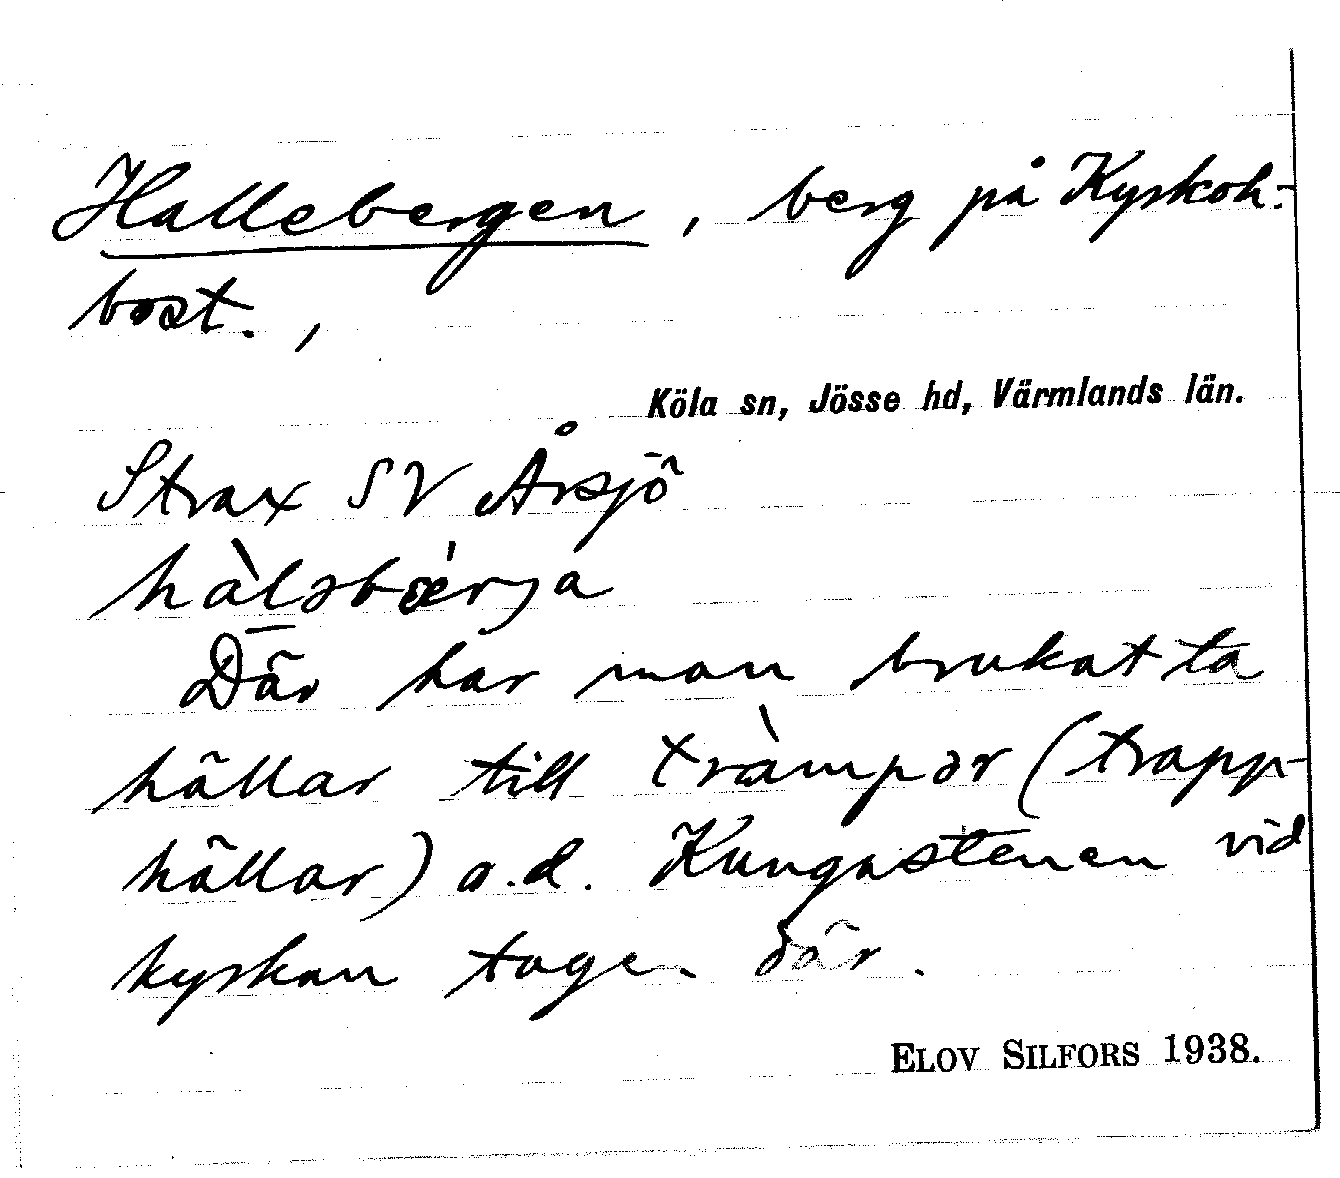 Hallebergen, berg på Kyrkoh:
bost.,
Köla sn, Jösse hd, Värmlands län.
Strax SV Årsjö
hàləbæ̀rja
Där har man brukat ta
hällar till tràmpər (trapp-
hällar) o.d. Kungastenen vid
kyrkan tagen där.
ELOV SILFORS 1938.